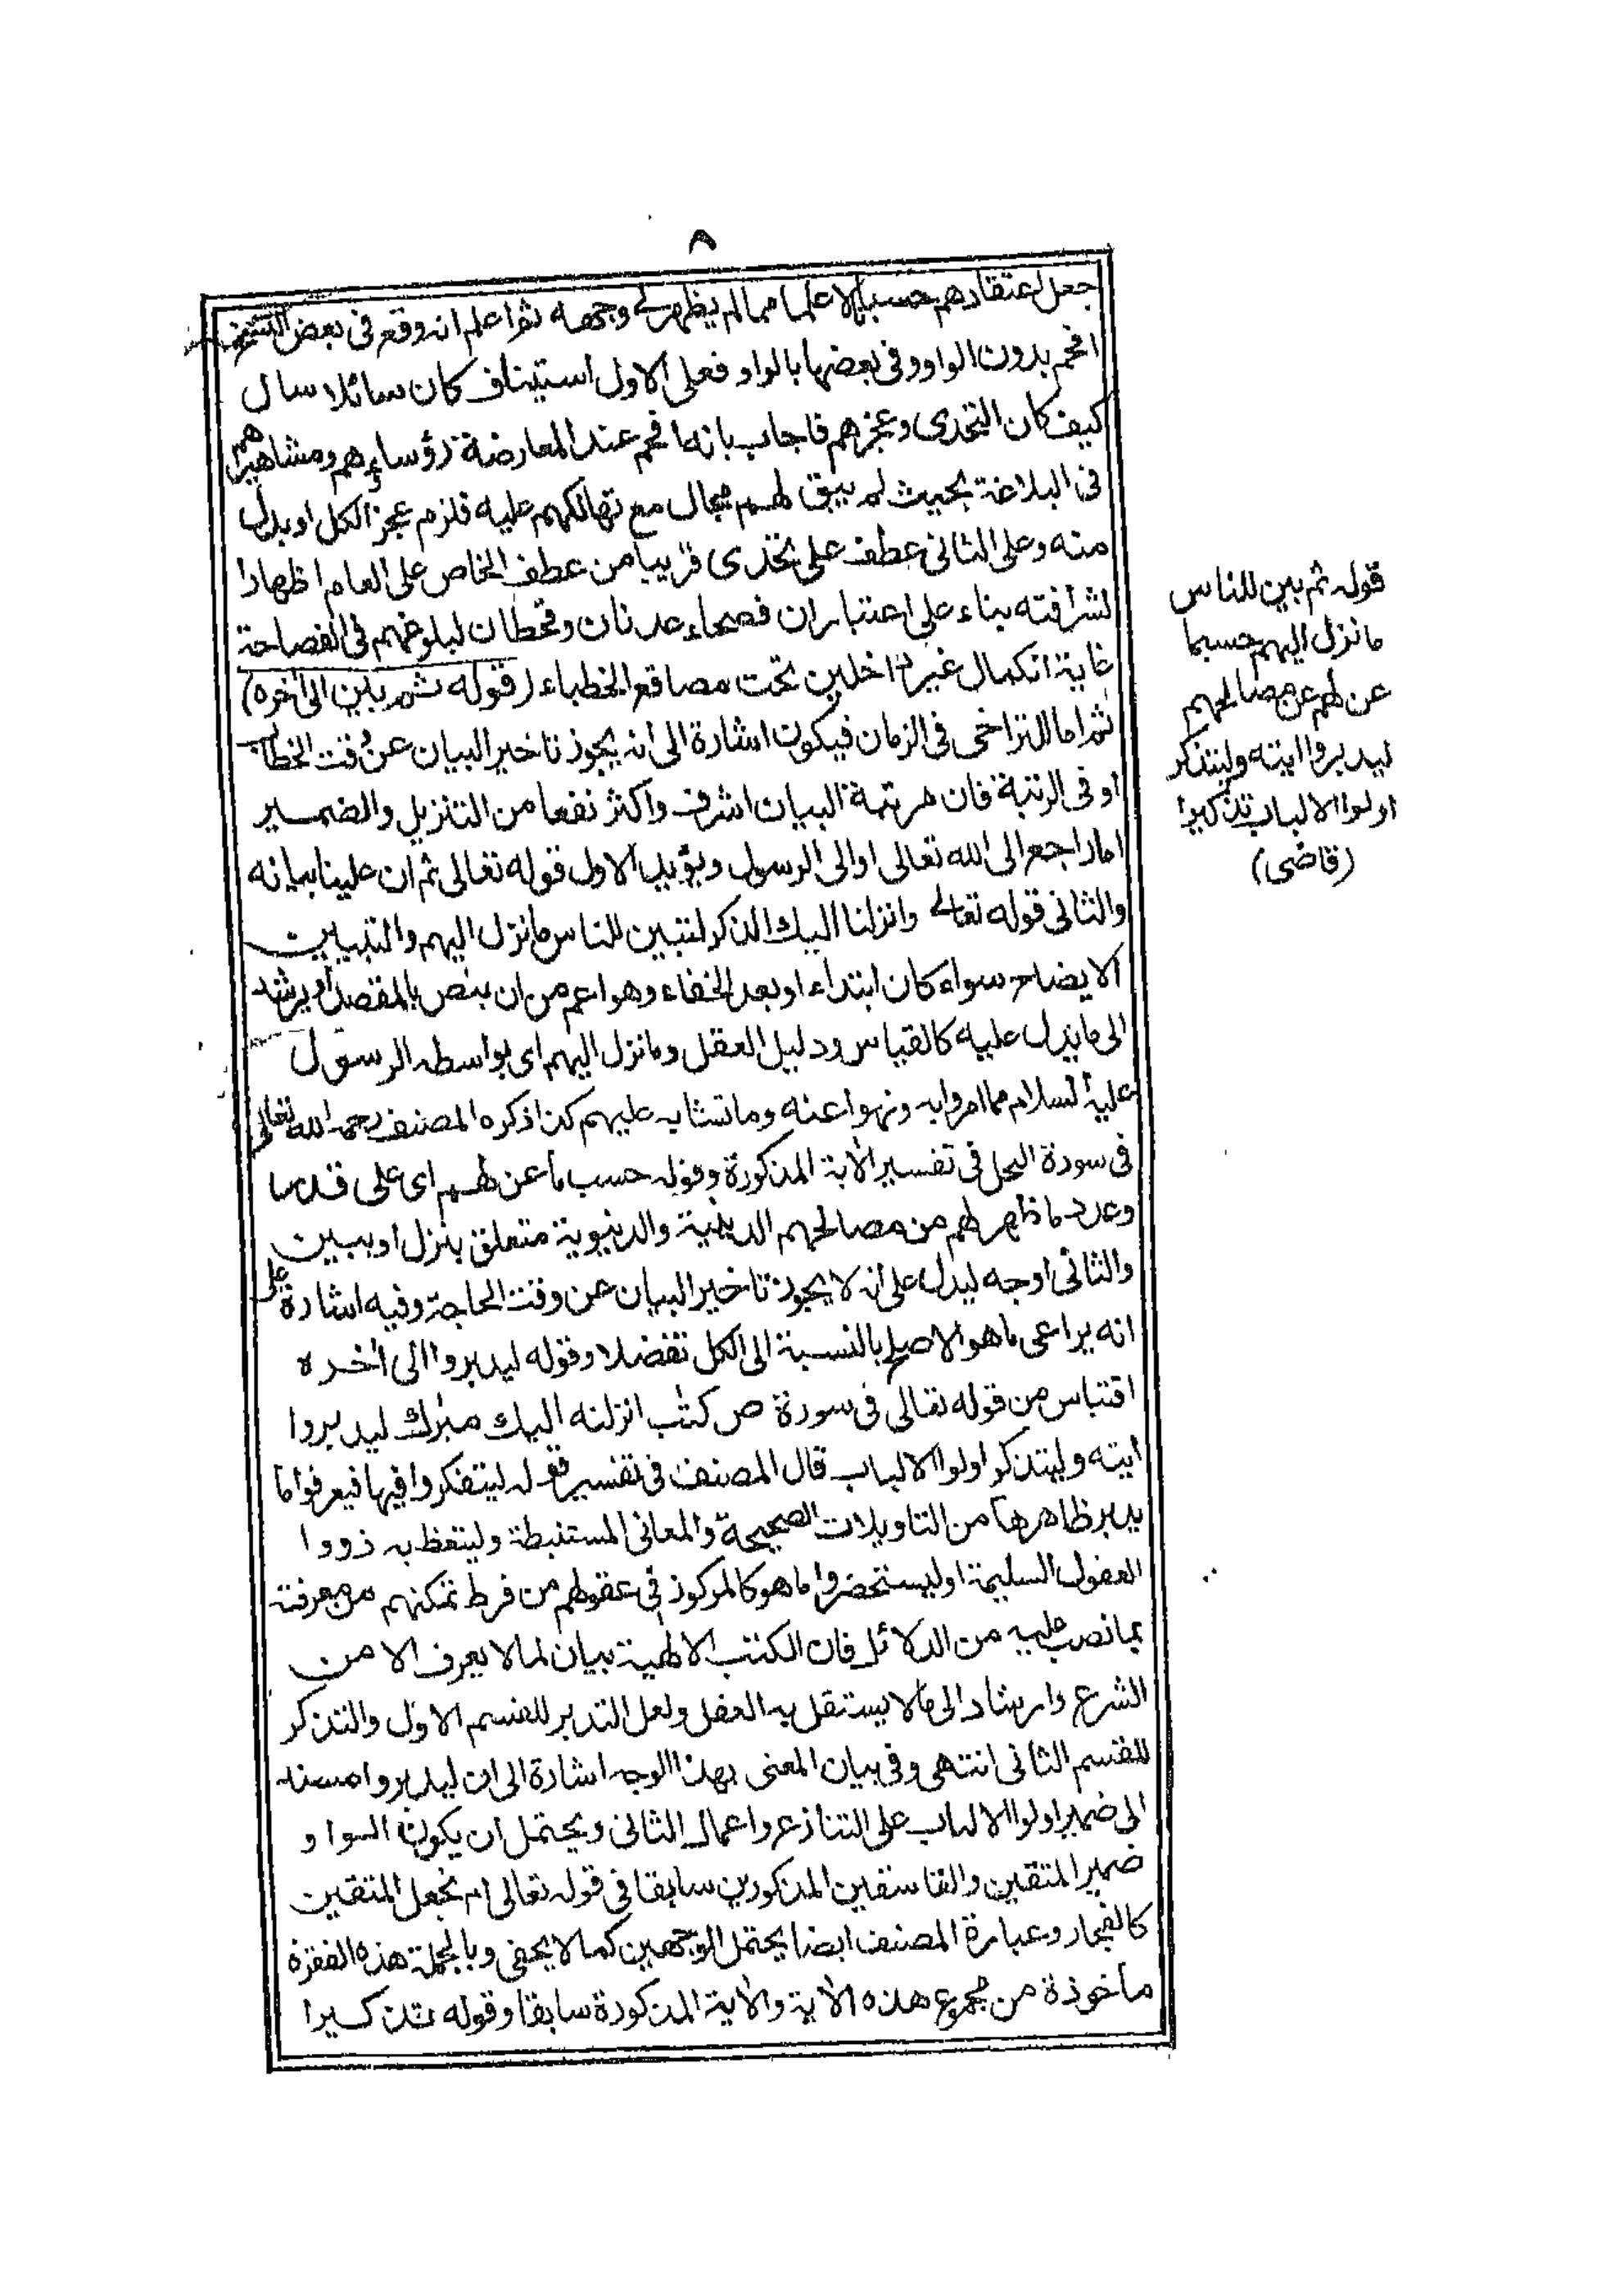 ٨
جعل اعتقادهم حسبانا لا علما مما لم يظهر لى وجهه ثم اعلم انه وقع فى بعض النسخ
افحم بدون الواو وفى بعضها بالواو فعلى الاول استيناف كان سائلا سال
كيف كان التحدى وعجزهم فاجاب بانه افحم عند المعارضة رؤساءهم ومشاهيرهم
فى البلاغة بحيث لم يبق لهم مجال مع تهالكهم عليه فلزم عجز الكل او بدل
منه وعلى الثانى عطف على تحدى قريبا من عطف الخاص على العام اظهارا
لشرافته بناء على اعتبار ان فصحاء عدنان وقحطان لبلوغهم فى الفصاحة
غاية الكمال غير داخلين تحت مصاقع الخطباء (قوله ثم بين الى اخره)
ثم اما للتراخى فى الزمان فيكون اشارة الى انه يجوز تاخير البيان عن وقت الخطاب
او فى الرتبة فان مرتبة البيان اشرف واكثر نفعا من التنزيل والضمير
اما راجع الى الله تعالى او الى الرسول ويؤيد الاول قوله تعالى ثم ان علينا بيانه
والثانى قوله تعالى وانزلنا اليك الذكر لتبين للناس ما نزل اليهم والتبيين
الايضاح سواء كان ابتداء او بعد الخفاء وهو اعم من ان ينص بالمقصد او يرشد
الى ما يدل عليه كالقياس ودليل العقل وما نزل اليهم اى بواسطه الرسول
عليه السلام مما امروا به ونهوا عنه وما تشابه عليهم كذا ذكره المصنف رحمه الله تعالى
فى سورة النحل فى تفسير الاية المذكورة وقوله حسب ما عن لهم اى على قدر ما
وعدد ما ظهر لهم من مصالحهم الدينية والدنيوية متعلق بنزل او ببين
والثانى اوجه ليدل على انه لا يجوز تاخير البيان عن وقت الحاجة وفيه اشارة على
انه يراعى ما هو الاصلح بالنسبة الى الكل تفضلا وقوله ليدبروا الى اخره
اقتباس من قوله تعالى فى سورة ص كتب انزلنه اليك مبرك ليدبروا
ايته وليتذكر اولوا الالباب قال المصنف فى تفسير قوله ليتفكروا فيها فيعرفوا ما
يدبر ظاهرها من التاويلات الصحيحة والمعانى المستنبطة وليتعظ به ذووا
العقول السليمة او ليستحضروا ما هو كالمركوز فى عقولهم من فرط تمكنهم من معرفته
بما نصب عليه من الدلائل فان الكتب الالهية بيان لما لا يعرف الا من
الشرع وارشاد الى ما لا يستقل به العقل ولعل التدبر للقسم الاول والتذكر
للقسم الثانى انتهى وفى بيان المعنى بهذا الوجه اشارة الى ان ليدبروا مسند
الى ضمير اولوا الالباب على التنازع واعمال الثانى ويحتمل ان يكون الواو
ضمير المتقين والفاسقين المذكورين سابقا فى قوله تعالى ام نجعل المتقين
كالفجار وعبارة المصنف ايضا يحتمل الوجهين كما لا يخفى وبالجملة هذه الفقرة
ماخوذة من مجموع هذه الاية والاية المذكورة سابقا وقوله تذكيرا
قوله ثم بين للناس
ما نزل اليهم حسبما
عن لهم عن مصالحهم
ليدبروا ايته وليتذكر
اولوا الالباب تذكيرا
(قاضى)